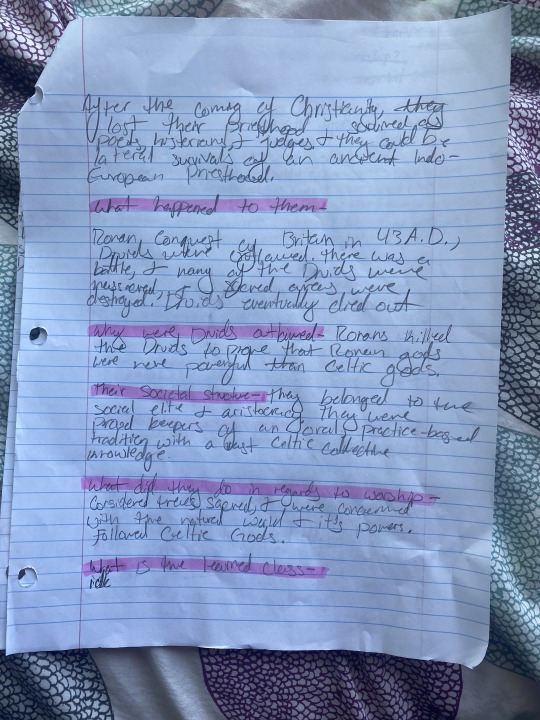 After the coming of Christianity, they
lost their Priesthood survived as
poets, historians, & judges & they could be
lateral survivals of an ancient Indo-
European Priesthood.
What happened to them-
Roman Conquest of Britain in 43 A.D.,
Druids were outlawed. there was a
battle, & many of the Druids were
massacred, & sacred areas were
destroyed. Druids eventually died out
Why were Druids outlawed- Romans killed
the Druids to prove that Roman gods
were more powerful than Celtic gods.
Their Societal structure- They belonged to the
social elite & aristocracy they were
proud keepers of an oral, practice-based
tradition with a vast Celtic collective
knowledge.
What did they do in regards to worship-
Considered trees sacred, & were concerned
with the natural world & it's powers.
Followed Celtic Gods.
What is the learned class-